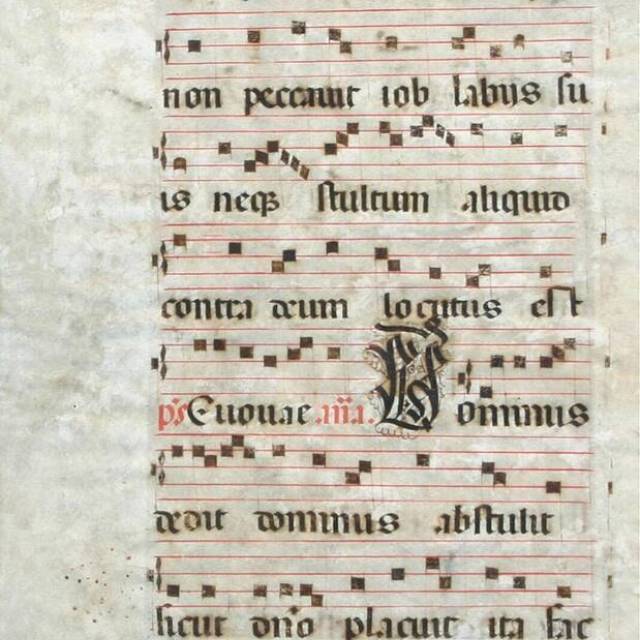 non peccauit iob labijs su
is neqꝫ stultum aliquid
contra deum locutus est
p̄s Euouae .aña. Dominus
dedit dominus abstulit
sicut dn̄o placuit ita fac